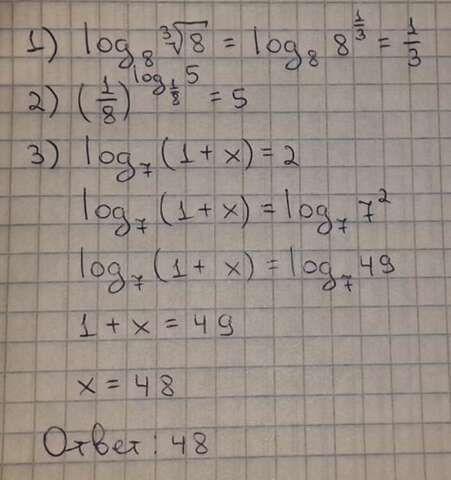 1) log₈ ∛8 = log₈ 8^(1/3) = 1/3
2) (1/8)^(log_(1/8) 5) = 5
3) log₇ (1 + x) = 2
log₇ (1 + x) = log₇ 7²
log₇ (1 + x) = log₇ 49
1 + x = 49
x = 48
Ответ: 48